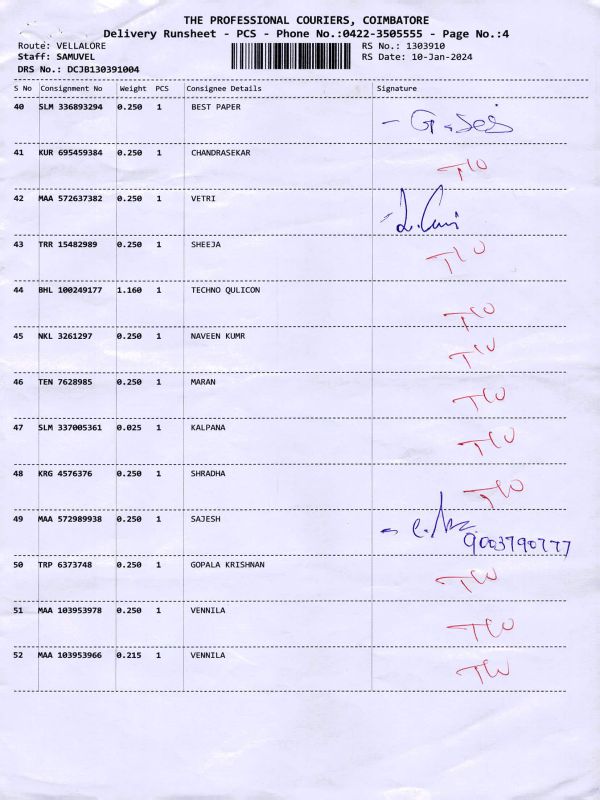 THE PROFESSIONAL COURIERS, COIMBATORE
Delivery Runsheet - PCS - Phone No.:0422-3505555 - Page No.:4
Route: VELLALORE RS No.: 1303910
Staff: SAMUVEL RS Date: 10-Jan-2024
DRS No.: DCJB130391004
S No Consignment No Weight PCS Consignee Details Signature
40 SLM 336893294 0.250 1 BEST PAPER
41 KUR 695459384 0.250 1 CHANDRASEKAR
42 MAA 572637382 0.250 1 VETRI
43 TRR 15482989 0.250 1 SHEEJA
44 BHL 100249177 1.160 1 TECHNO QULICON
45 NKL 3261297 0.250 1 NAVEEN KUMR
46 TEN 7628985 0.250 1 MARAN
47 SLM 337005361 0.025 1 KALPANA
48 KRG 4576376 0.250 1 SHRADHA
49 MAA 572989938 0.250 1 SAJESH
9003790777
50 TRP 6373748 0.250 1 GOPALA KRISHNAN
51 MAA 103953978 0.250 1 VENNILA
52 MAA 103953966 0.215 1 VENNILA